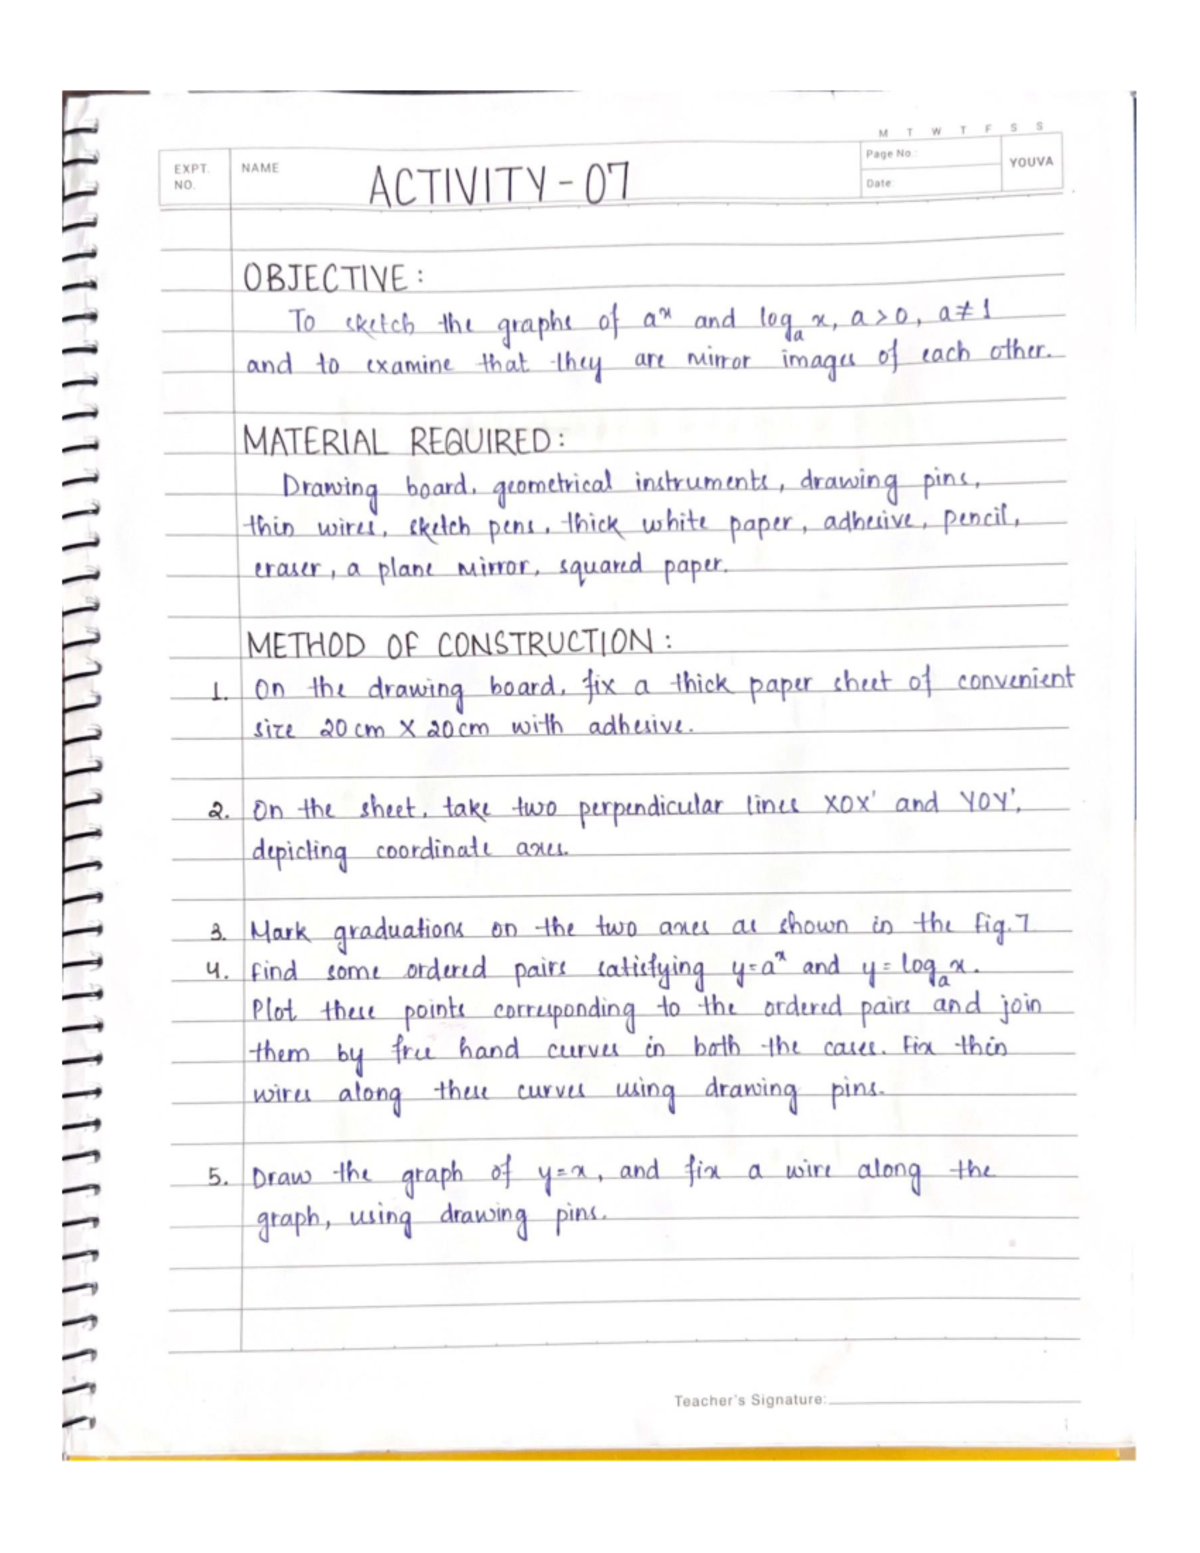 M T W T F S S
EXPT. NO.
NAME
ACTIVITY - 07
Page No.:
Date:
YOUVA
OBJECTIVE :
To sketch the graphs of aˣ and logₐ x, a > 0, a ≠ 1
and to examine that they are mirror images of each other.
MATERIAL REQUIRED :
Drawing board, geometrical instruments, drawing pins,
thin wires, sketch pens, thick white paper, adhesive, pencil,
eraser, a plane mirror, squared paper.
METHOD OF CONSTRUCTION :
1. On the drawing board, fix a thick paper sheet of convenient
size 20 cm X 20 cm with adhesive.
2. On the sheet, take two perpendicular lines XOX' and YOY',
depicting coordinate axes.
3. Mark graduations on the two axes as shown in the Fig. 7
4. Find some ordered pairs satisfying y = aˣ and y = logₐ x.
Plot these points corresponding to the ordered pairs and join
them by free hand curves in both the cases. Fix thin
wires along these curves using drawing pins.
5. Draw the graph of y = x, and fix a wire along the
graph, using drawing pins.
Teacher's Signature: